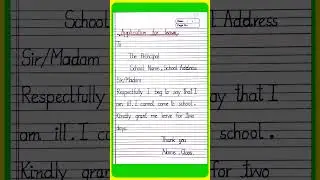 School Name, School Address
Sir/Madam
Respectfully I beg to say that I
am ill. I cannot come to school.
Kindly grant me leave for two
Application for leave
To
The Principal
School Name, School Address
Sir/Madam
Respectfully I beg to say that I
am ill. I cannot come to school.
Kindly grant me leave for two
days.
Thank you
Name, Class